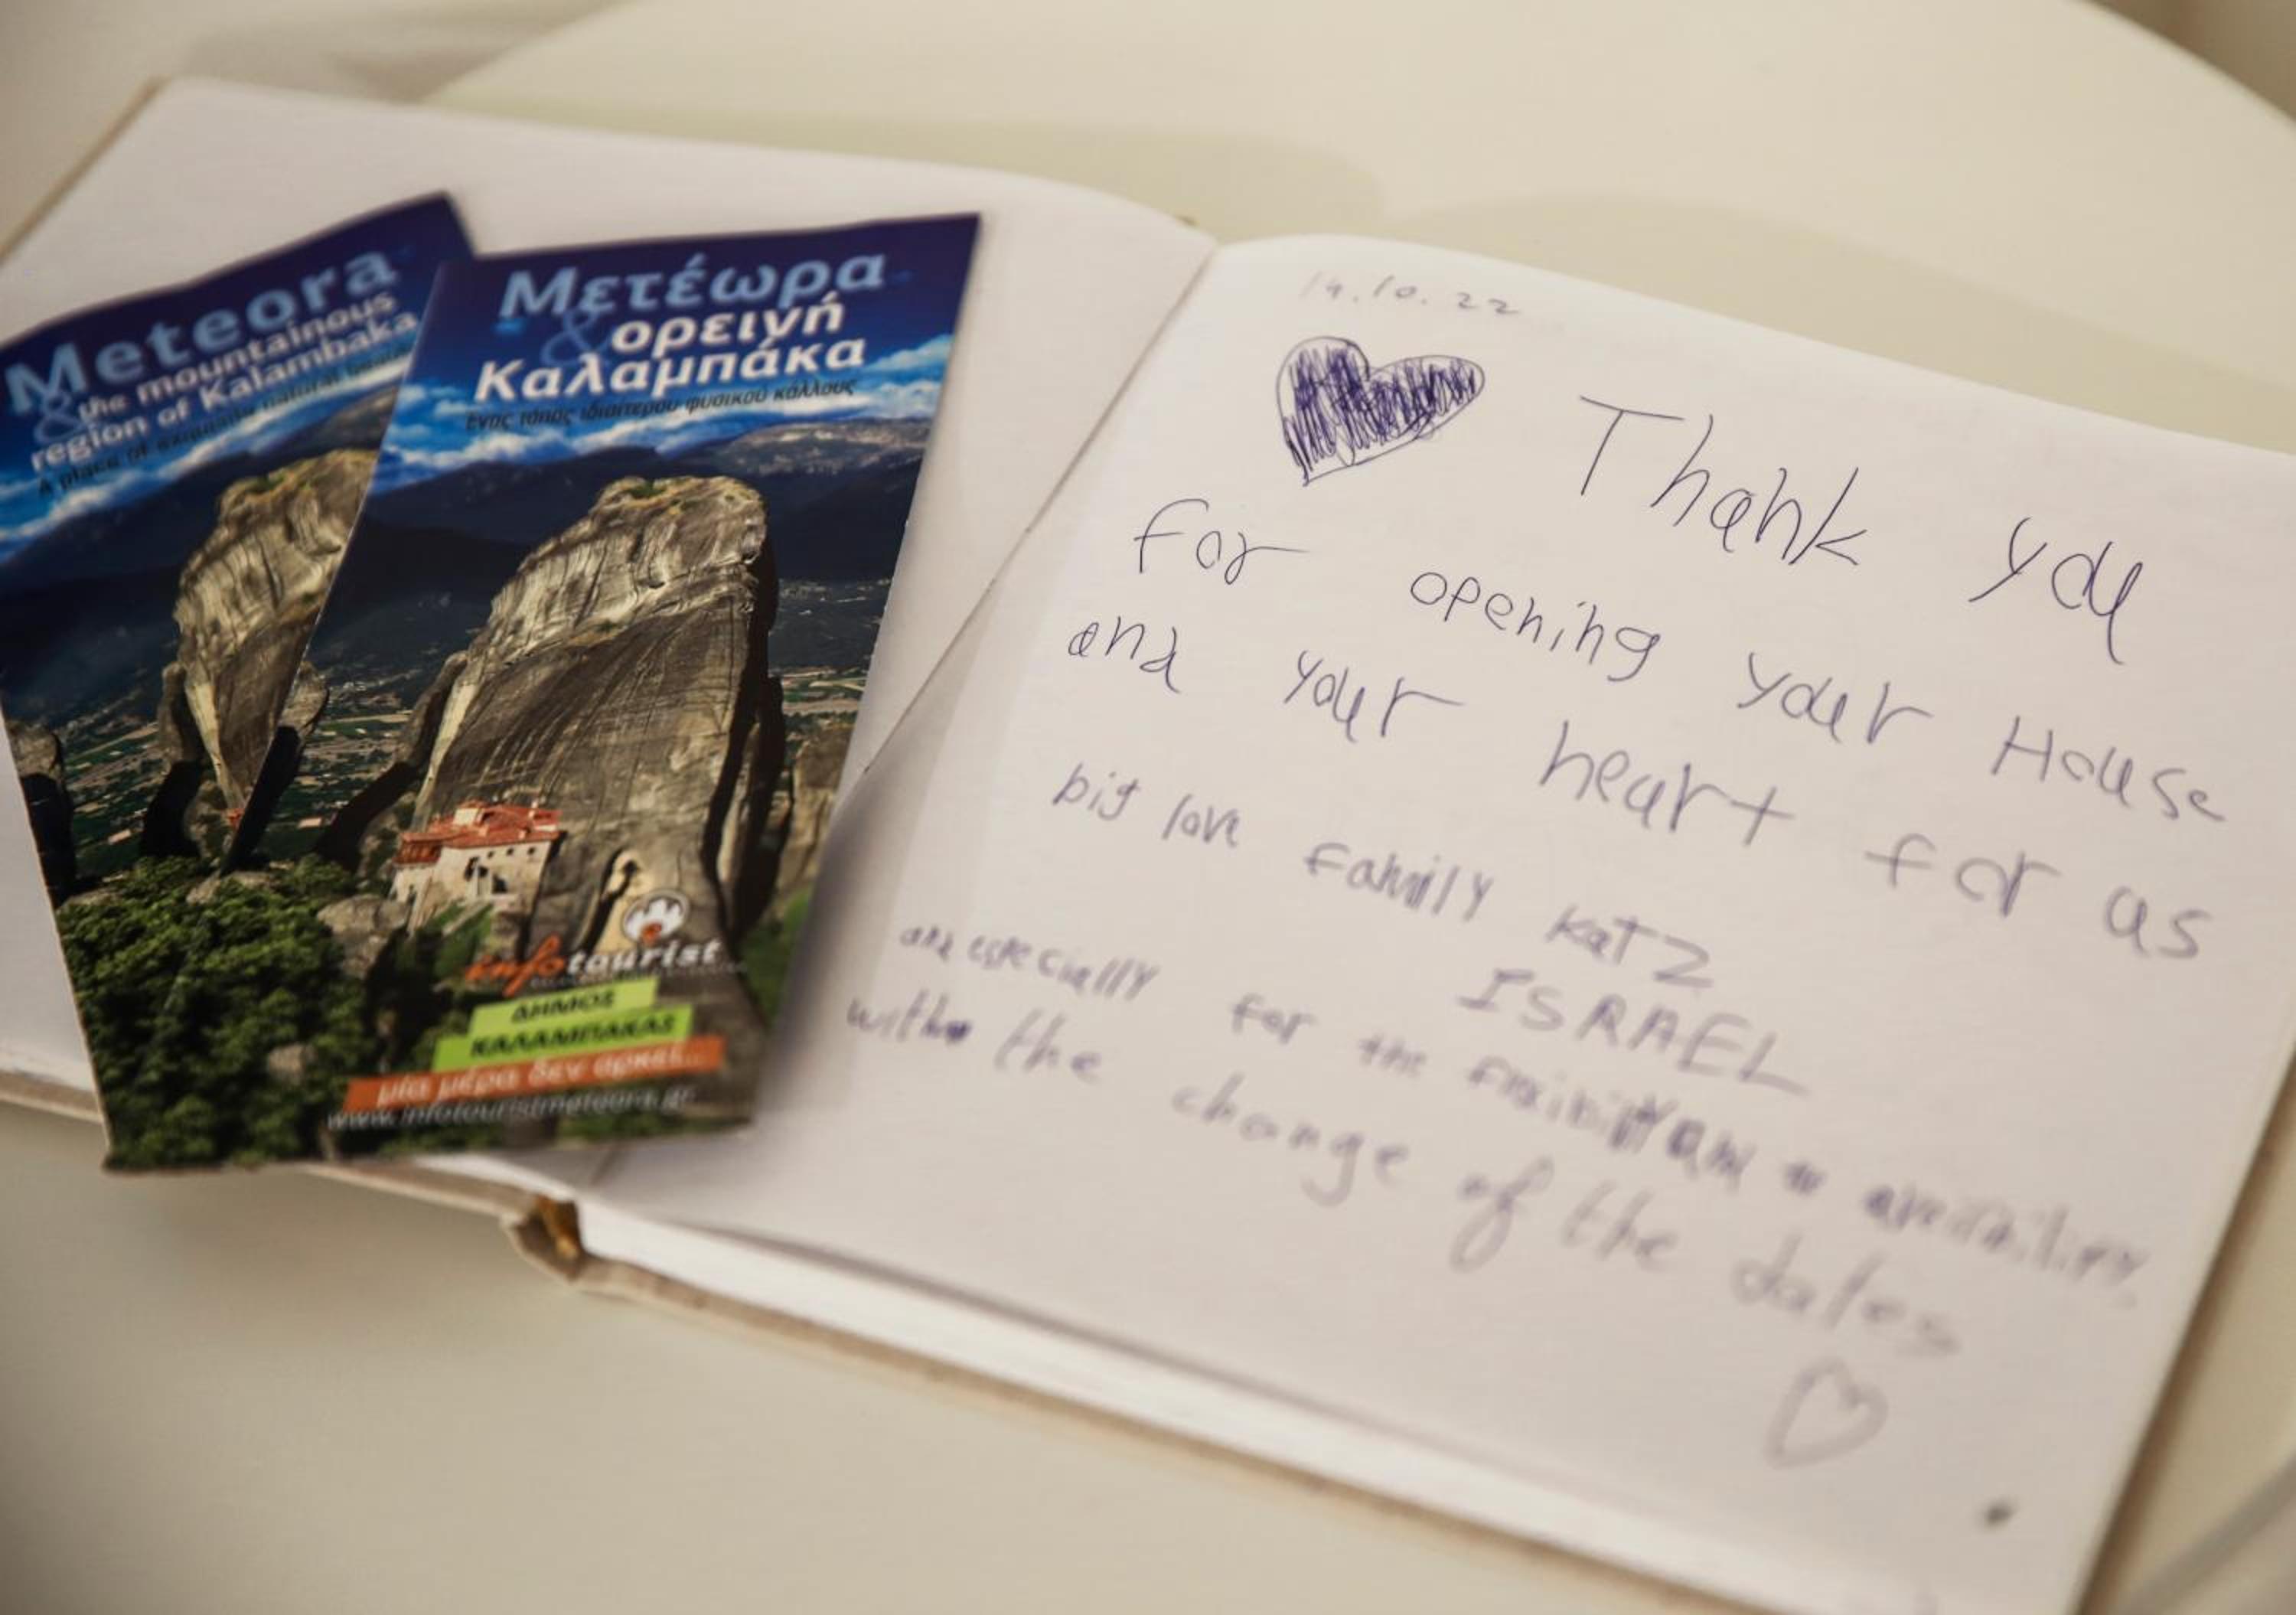 Meteora
& the mountainous
region of Kalambaka
A place of exquisite natural
Μετέωρα
& ορεινή
Καλαμπάκα
Ένας τόπος ιδιαίτερου φυσικού κάλλους
infotourist
ΔΗΜΟΣ
ΚΑΛΑΜΠΑΚΑΣ
μία μέρα δεν αρκεί...
www.infotouristmeteora.gr
14.10.22
Thank you
for opening your House
and your heart for us
big love Family Katz
ISRAEL
and especially for the
with the change of the dates